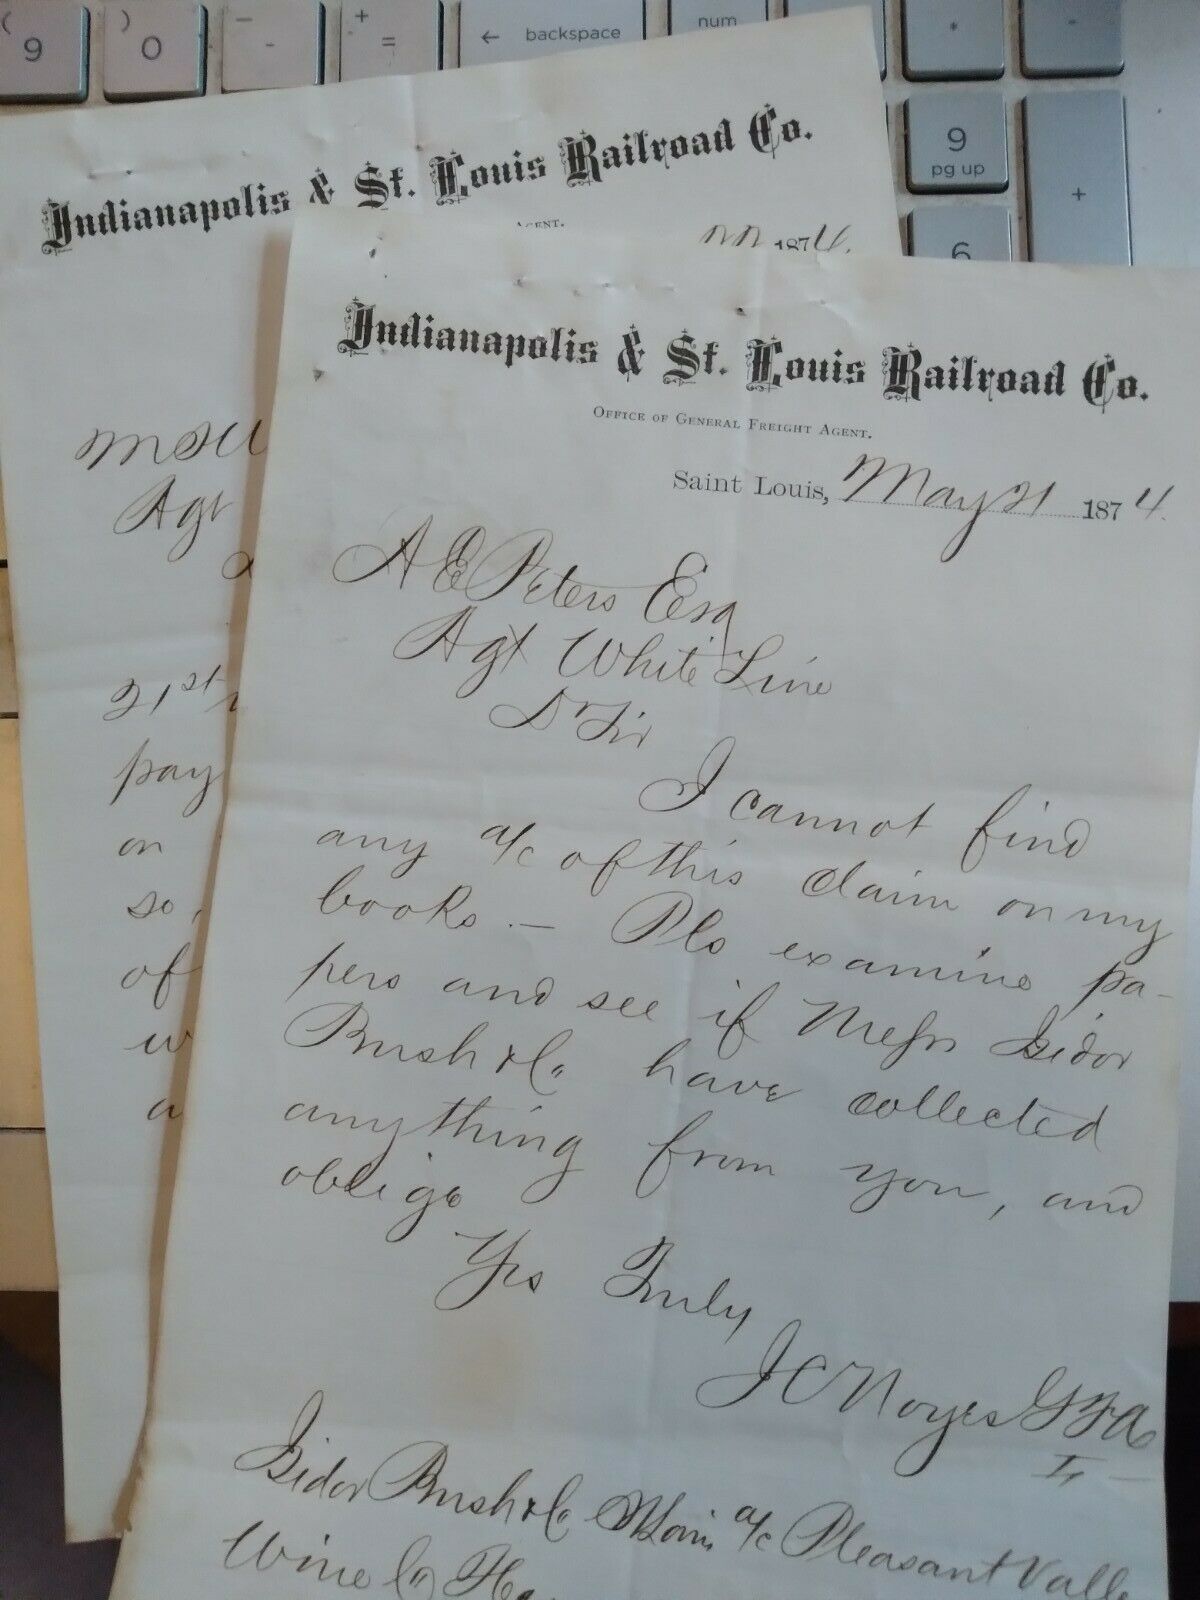 ( 9
) 0
- -
+ =
← backspace
num
*
-
9 pg up
+
6
Indianapolis & St. Louis Railroad Co.
AGENT.
22 1874.
Agt
21st
pay
on
so,
of
Indianapolis & St. Louis Railroad Co.
OFFICE OF GENERAL FREIGHT AGENT.
Saint Louis, May 21 1874.
A E Peters Esq
Agt White Line
Dr Sir
I cannot find
any a/c of this claim on my
books. — Pls examine pa-
pers and see if Messrs Isidor
Bush & Co. have collected
anything from you, and
oblige
Yrs Truly
J C Noyes G F A
Isidor Bush & Co a/c Pleasant Valle
Wine Co